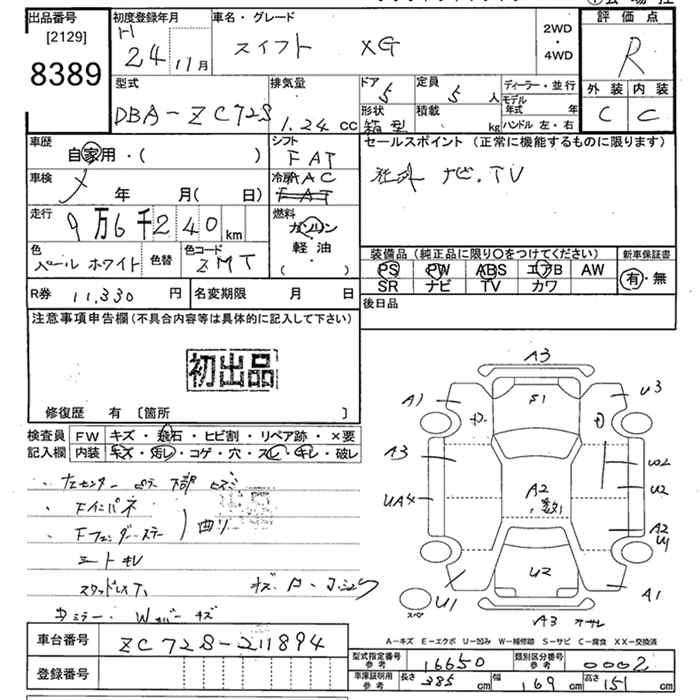 出品番号 初度登録年月 車名・グレード 評価点
[2129]
8389
H 24 11月
スイフト XG
2WD・4WD
R
型式 排気量 ドア 定員 ディーラー・並行 外装 内装
DBA-ZC72S 1.24cc 5 5人
形状 積載 モデル年式 年
箱型 kg ハンドル 左・右
C C
車歴 自家用・( ) シフト FAT
セールスポイント (正常に機能するものに限ります)
社外 ナビ.TV
車検 年 月( 日) 冷房 AAC
FAT
走行 9万6千240km 燃料 ガソリン
軽油
( )
色 パールホワイト 色替 色コード ZMT
装備品(純正品に限り〇をつけてください) 新車保証書
PS PW ABS エアB AW 有・無
SR ナビ TV カワ
R券 11,330円 名変期限 月 日
後日品
注意事項申告欄(不具合内容等は具体的に記入して下さい)
初出品
修復歴 有 [箇所 ]
検査員 FW キズ・飛石・ヒビ割・リペア跡・×要
記入欄 内装 キズ・汚レ・コゲ・穴・スレ・キレ・破レ
Fインパネ
曲り
シートキレ
スタッドレス
A3
A1 F1 U3
A3 U2
UA4 A2 U2
A2
U1
U2
U1 A1
スペア
A3
A-キズ E-エクボ U-凹み W-補修跡 S-サビ C-腐食 XX-交換済
車台番号 ZC72S-211894
登録番号
型式指定番号参考 16650 類別区分番号参考 0002
車庫証明用参考 長さ 385cm 幅 169cm 高さ 151cm